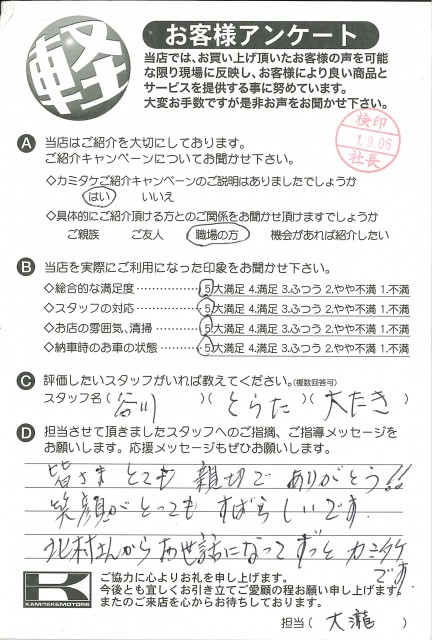 軽
お客様アンケート
当店では、お買い上げ頂いたお客様の声を可能
な限り現場に反映し、お客様により良い商品と
サービスを提供する事に努めています。
大変お手数ですが是非お声をお聞かせ下さい。
検印
1.9.06
社長
A 当店はご紹介を大切にしております。
ご紹介キャンペーンについてお聞かせ下さい。
◇カミタケご紹介キャンペーンのご説明はありましたでしょうか
はい いいえ
◇具体的にご紹介頂ける方とのご関係をお聞かせ頂けますでしょうか
ご親族 ご友人 職場の方 機会があれば紹介したい
B 当店を実際にご利用になった印象をお聞かせ下さい。
◇総合的な満足度 5.大満足 4.満足 3.ふつう 2.やや不満 1.不満
◇スタッフの対応 5.大満足 4.満足 3.ふつう 2.やや不満 1.不満
◇お店の雰囲気、清掃 5.大満足 4.満足 3.ふつう 2.やや不満 1.不満
◇納車時のお車の状態 5.大満足 4.満足 3.ふつう 2.やや不満 1.不満
C 評価したいスタッフがいれば教えてください。(複数回答可)
スタッフ名(谷川)(とらた)(大たき)
D 担当させて頂きましたスタッフへのご指摘、ご指導メッセージを
お願いします。応援メッセージもぜひお願いします。
皆さま とても 親切で ありがとう!!
笑顔が とっても すばらしいです。
北村さんから お世話になって ずっと カミタケ
です。
K
KAMITAKE MOTORS
ご協力に心よりお礼を申し上げます。
今後とも宜しくお引き立てご愛顧の程お願い申し上げます。
またのご来店を心からお待ちしております。
担当(大瀧)